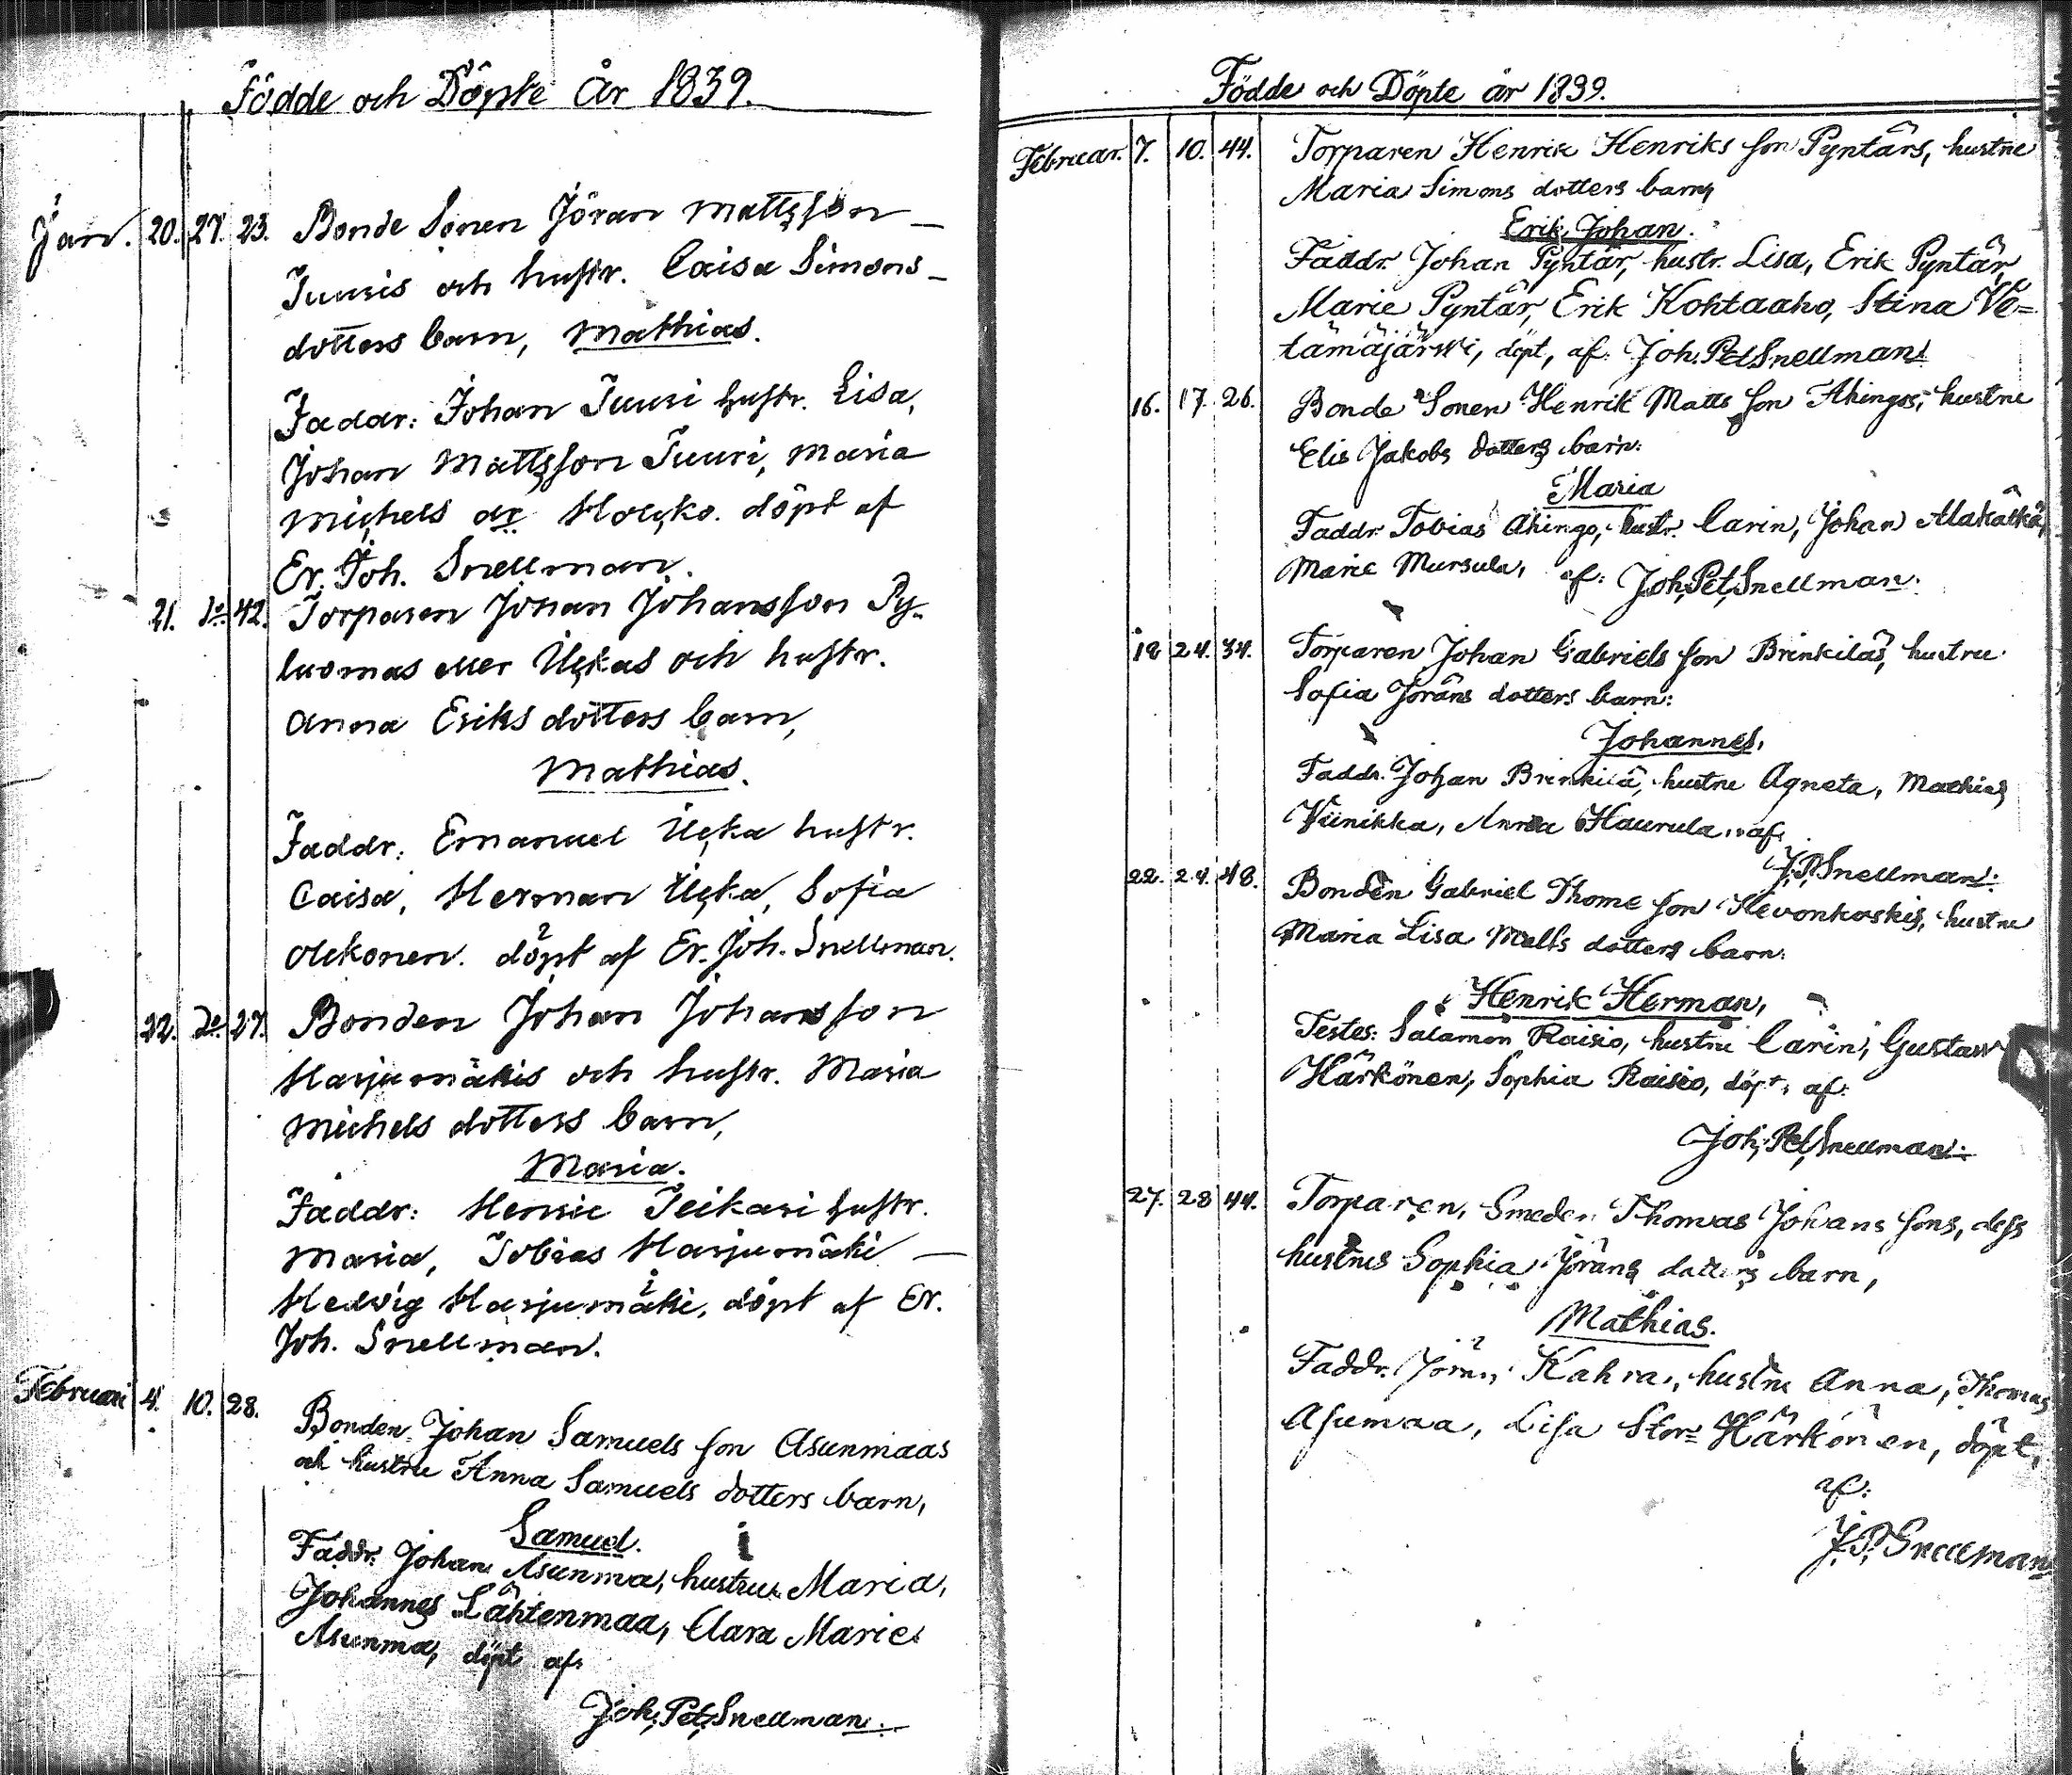 Födde och Döpte År 1839.
Jan. 20. 27. 23. Bonde Sonen Jöran Mattsson –
Juuris och hustr. Caisa Simons –
dotters barn, Mathias.
Faddr: Johan Juuri hustr. Lisa,
Johan Mattsson Juuri, Maria
Michels dr Houko. döpt af
Er. Joh. Snellman.
21. Do 42. Torparen Johan Johansson Py-
luomas eller Ulkas och hustr.
Anna Eriks dotters barn,
Mathias.
Faddr: Emanuel Ulka hustr.
Caisa, Herman Ulka, Sofia
Olekonen. döpt af Er. Joh. Snellman.
22. Do 27. Bonden Johan Johansson
Harjumäkis och hustr. Maria
Michels dotters barn,
Maria.
Faddr: Henric Teikari hustr.
Maria, Tobias Harjumäki –
Hedvig Harjumäki, döpt af Er.
Joh. Snellman.
Februari 4. 10. 28. Bonden Johan Samuels son Asunmaas
och hustru Anna Samuels dotters barn,
Samuel.
Faddr. Johan Asunma, hustru Maria,
Johannes Lähtenmaa, Clara Marie
Asunma, döpt af:
Joh, Pet, Snellman.
Födde och Döpte år 1839.
Februar. 7. 10. 44. Torparen Henrik Henriks son Pyntärs, hustru
Maria Simons dotters barn,
Erik Johan.
Faddr. Johan Pyntär, hustr. Lisa, Erik Pyntär,
Marie Pyntär, Erik Kohtaaho, Stina Ve=
tämäjärwi, döpt, af: Joh. Pet Snellman.
16. 17. 26. Bonde Sonen Henrik Matts son Ahingos, hustru
Elis Jakobs dotters barn:
Maria
Faddr. Tobias Ahingo, hustr. Carin, Johan Alakätkä,
Marie Mursula, af: Joh, Pet, Snellman.
18 24. 34. Torparen Johan Gabriels son Brinkiläs, hustru
Sofia Jörans dotters barn:
Johannes,
Faddr. Johan Brinkilä, hustru Agneta, Mathias
Viinikka, Anna Haurula, af:
J. P. Snellman.
22. 24. 48. Bonden Gabriel Thome son Kevonkoskis, hustru
Maria Lisa Matts dotters barn:
Henrik Herman,
Testes: Salamon Raisio, hustru Carin, Gustaw
Härkönen, Sophia Raisio, döpt, af:
Joh, Pet, Snellman.
27. 28 44. Torparen, Smeden Thomas Johans sons, dess
hustrus Sophia Jörans dotters barn,
Mathias.
Faddr. Jöran Kahra, hustru Anna, Thomas
Asumaa, Lisa Stor= Härkönen, döpt,
af:
J. P. Snellman